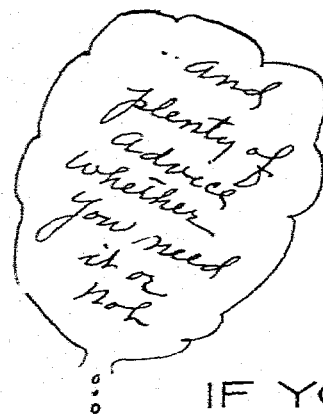 ..and
plenty of
advice
whether
you need
it or
not
IF YO